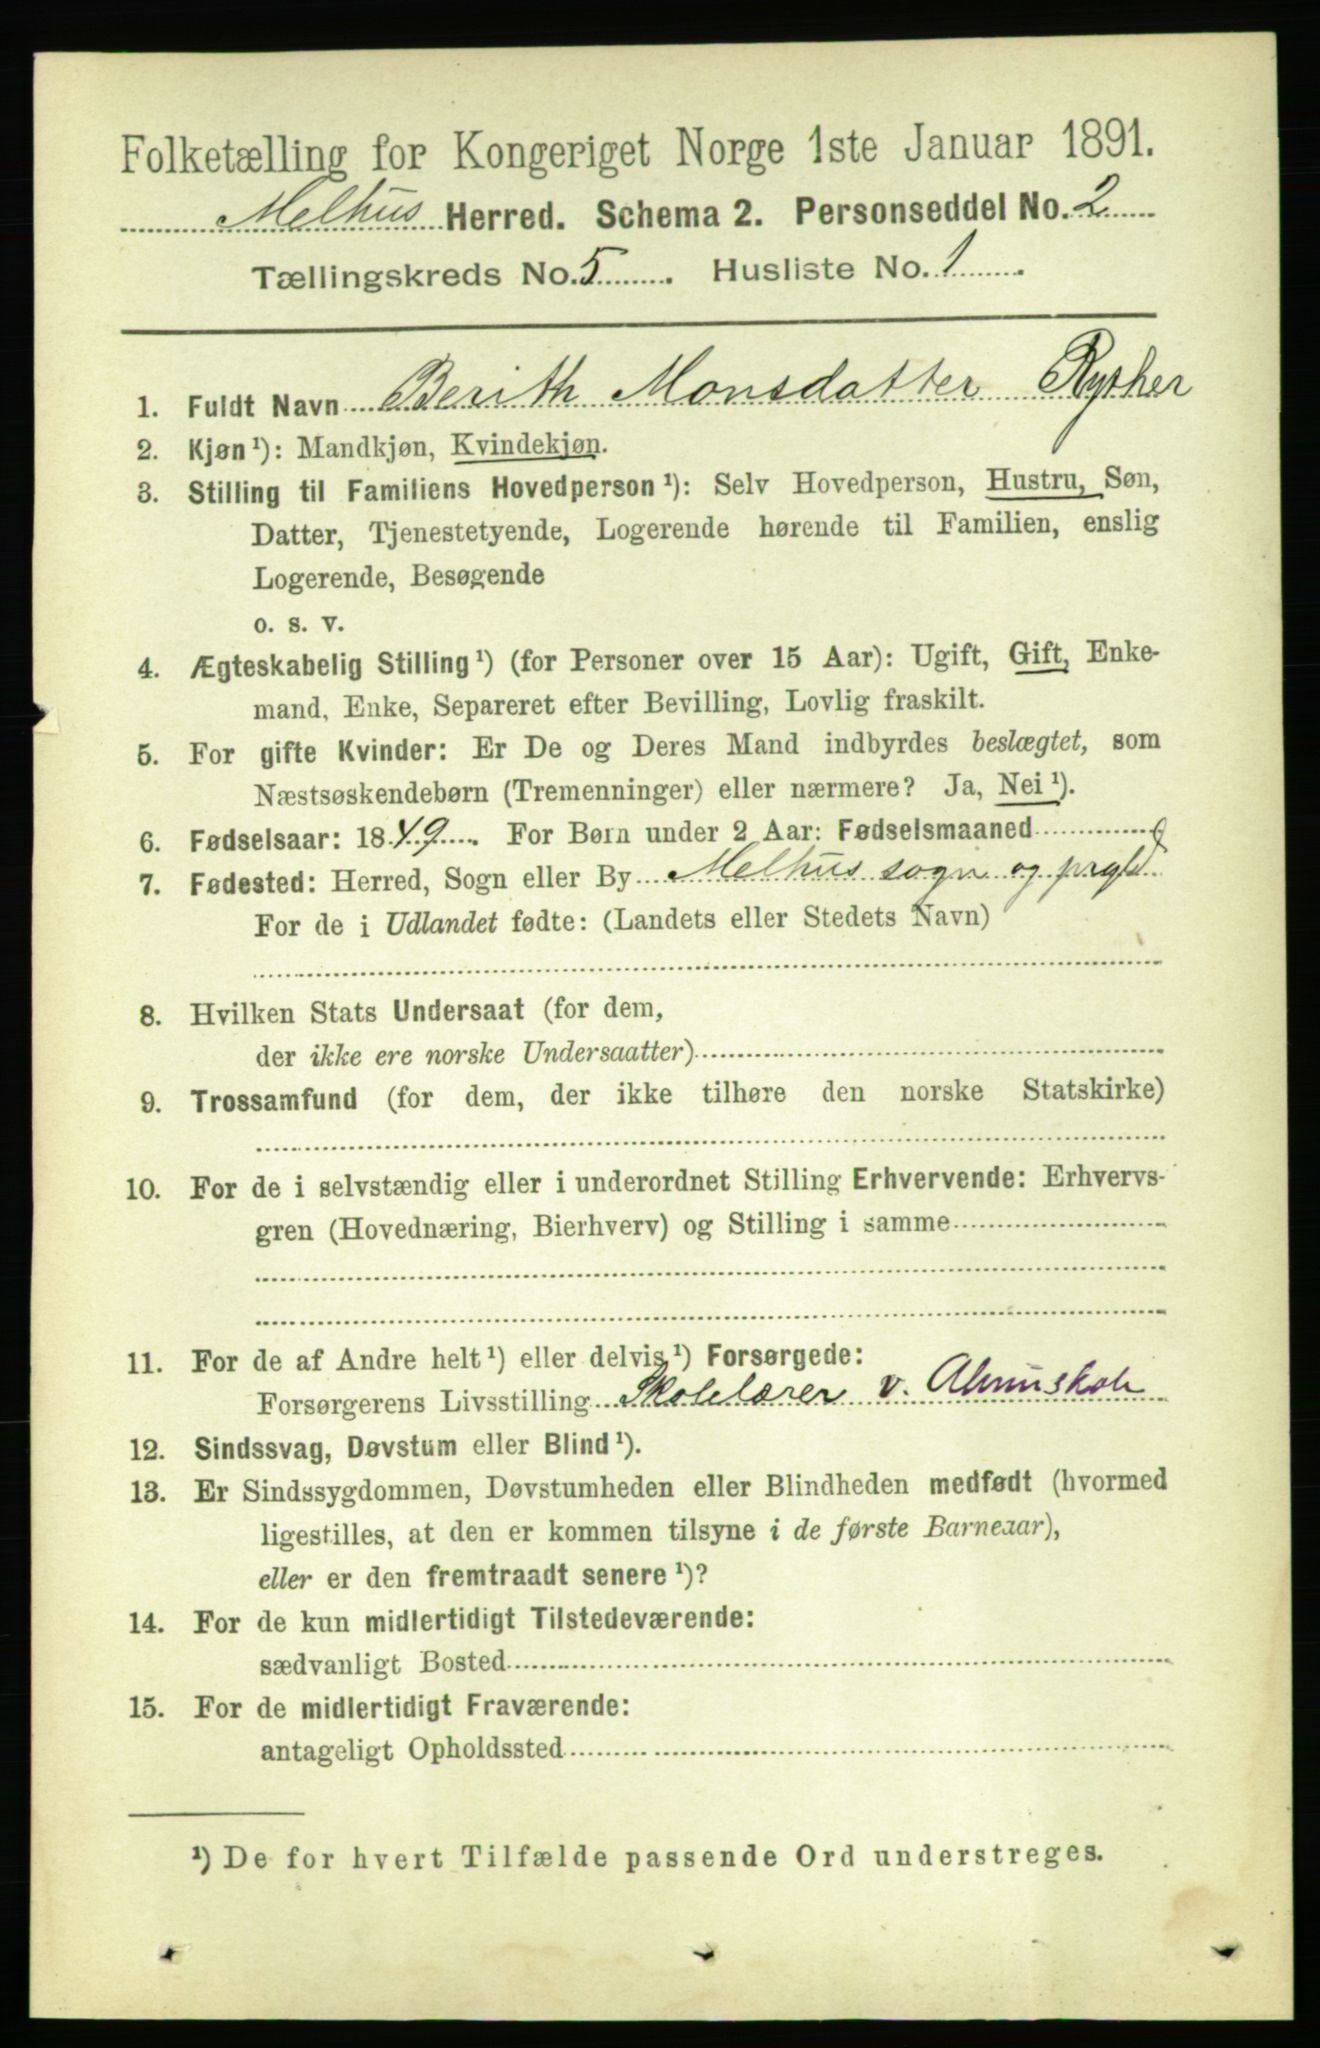 Folketælling for Kongeriget Norge 1ste Januar 1891.
Melhus Herred. Schema 2. Personseddel No. 2
Tællingskreds No. 5. Husliste No. 1.
1. Fuldt Navn Berith Monsdatter Rysher
2. Kjøn¹): Mandkjøn, Kvindekjøn.
3. Stilling til Familiens Hovedperson¹): Selv Hovedperson, Hustru, Søn,
Datter, Tjenestetyende, Logerende hørende til Familien, enslig
Logerende, Besøgende
o. s. v.
4. Ægteskabelig Stilling¹) (for Personer over 15 Aar): Ugift, Gift, Enke-
mand, Enke, Separeret efter Bevilling, Lovlig fraskilt.
5. For gifte Kvinder: Er De og Deres Mand indbyrdes beslægtet, som
Næstsøskendebørn (Tremenninger) eller nærmere? Ja, Nei¹).
6. Fødselsaar: 1849. For Børn under 2 Aar: Fødselsmaaned
7. Fødested: Herred, Sogn eller By Melhus sogn og prgld
For de i Udlandet fødte: (Landets eller Stedets Navn)
8. Hvilken Stats Undersaat (for dem,
der ikke ere norske Undersaatter)
9. Trossamfund (for dem, der ikke tilhøre den norske Statskirke)
10. For de i selvstændig eller i underordnet Stilling Erhvervende: Erhvervs-
gren (Hovednæring, Bierhverv) og Stilling i samme
11. For de af Andre helt¹) eller delvis¹) Forsørgede:
Forsørgerens Livsstilling Skolelærer v. Almuskole
12. Sindssvag, Døvstum eller Blind¹).
13. Er Sindssygdommen, Døvstumheden eller Blindheden medfødt (hvormed
ligestilles, at den er kommen tilsyne i de første Barneaar),
eller er den fremtraadt senere¹)?
14. For de kun midlertidigt Tilstedeværende:
sædvanligt Bosted
15. For de midlertidigt Fraværende:
antageligt Opholdssted
¹) De for hvert Tilfælde passende Ord understreges.